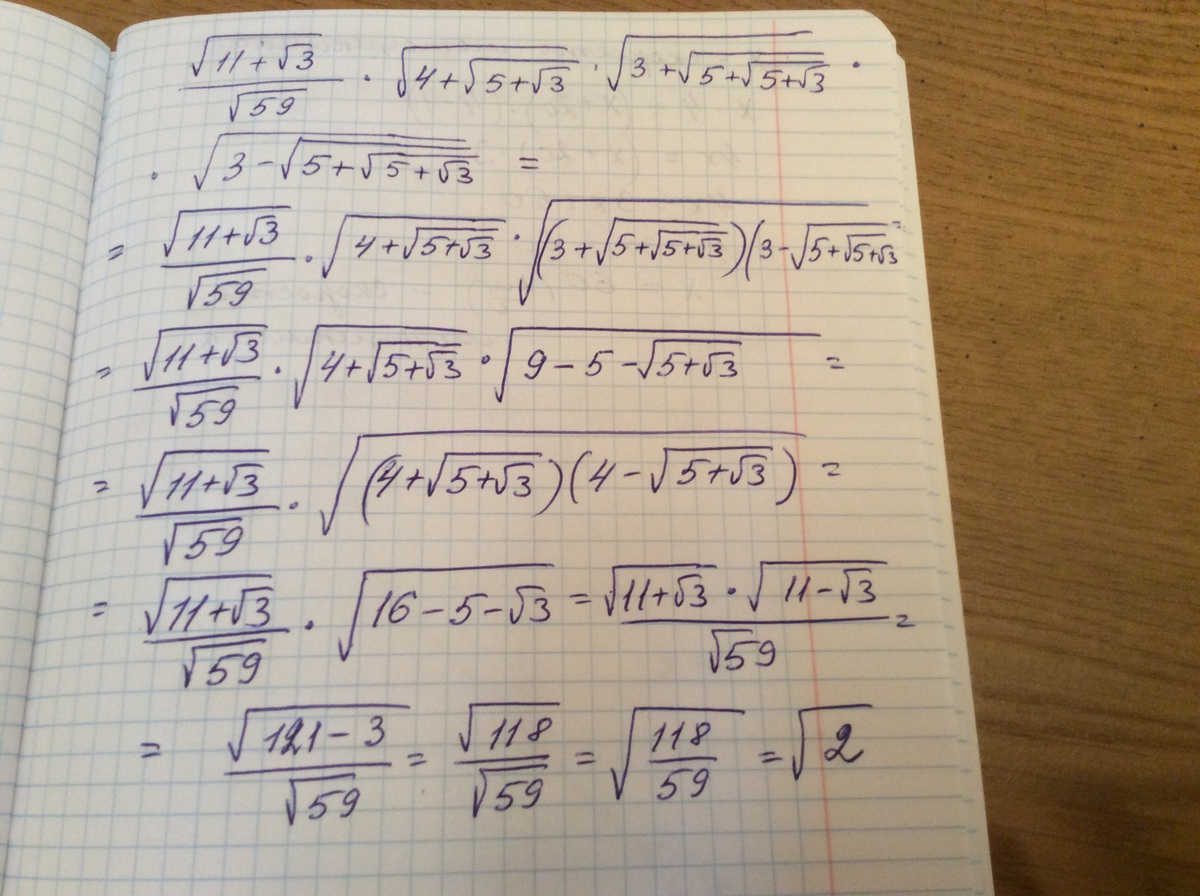 √(11+√3)/√59 · √(4+√(5+√3)) · √(3+√(5+√(5+√3))) ·
· √(3-√(5+√(5+√3))) =
= √(11+√3)/√59 · √(4+√(5+√3)) · √((3+√(5+√(5+√3)))(3-√(5+√(5+√3))) =
= √(11+√3)/√59 · √(4+√(5+√3)) · √(9-5-√(5+√3)) =
= √(11+√3)/√59 · √((4+√(5+√3))(4-√(5+√3))) =
= √(11+√3)/√59 · √(16-5-√3) = √(11+√3) · √(11-√3)/√59 =
= √(121-3)/√59 = √118/√59 = √(118/59) = √2